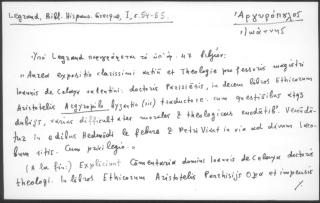 Legrand, Bibl. Hispano-Grecque, I, σ. 54-55.
Ἀργυρόπουλος
Ἰωάννης
Ὑπὸ Legrand περιγράφεται τὸ ὑπ' ἀρ. 47 βιβλίον:
"Aurea expositio clarissimi artiũ et Theologie professoris magistri
Ioannis de Celaya valentini: doctoris Parisiẽsis, in decem libros Ethicorum
Aristotelis Argyropilo byzantio (sic) traductore. cum questiõibus atqꝫ
dubijs, varias difficultates morales & theologicas enodãtib'. Venũdã-
tur in edibus Hedmũdi le febure & Petri Viart in via ad divum Iaco-
bum sitis. Cum privilegio."
(A la fin:) Expliciunt Cõmentaria domini Ioannis de Celaya doctoris
theologi. In libros Ethicorum Aristotelis Parrhisijs Opa et impensis